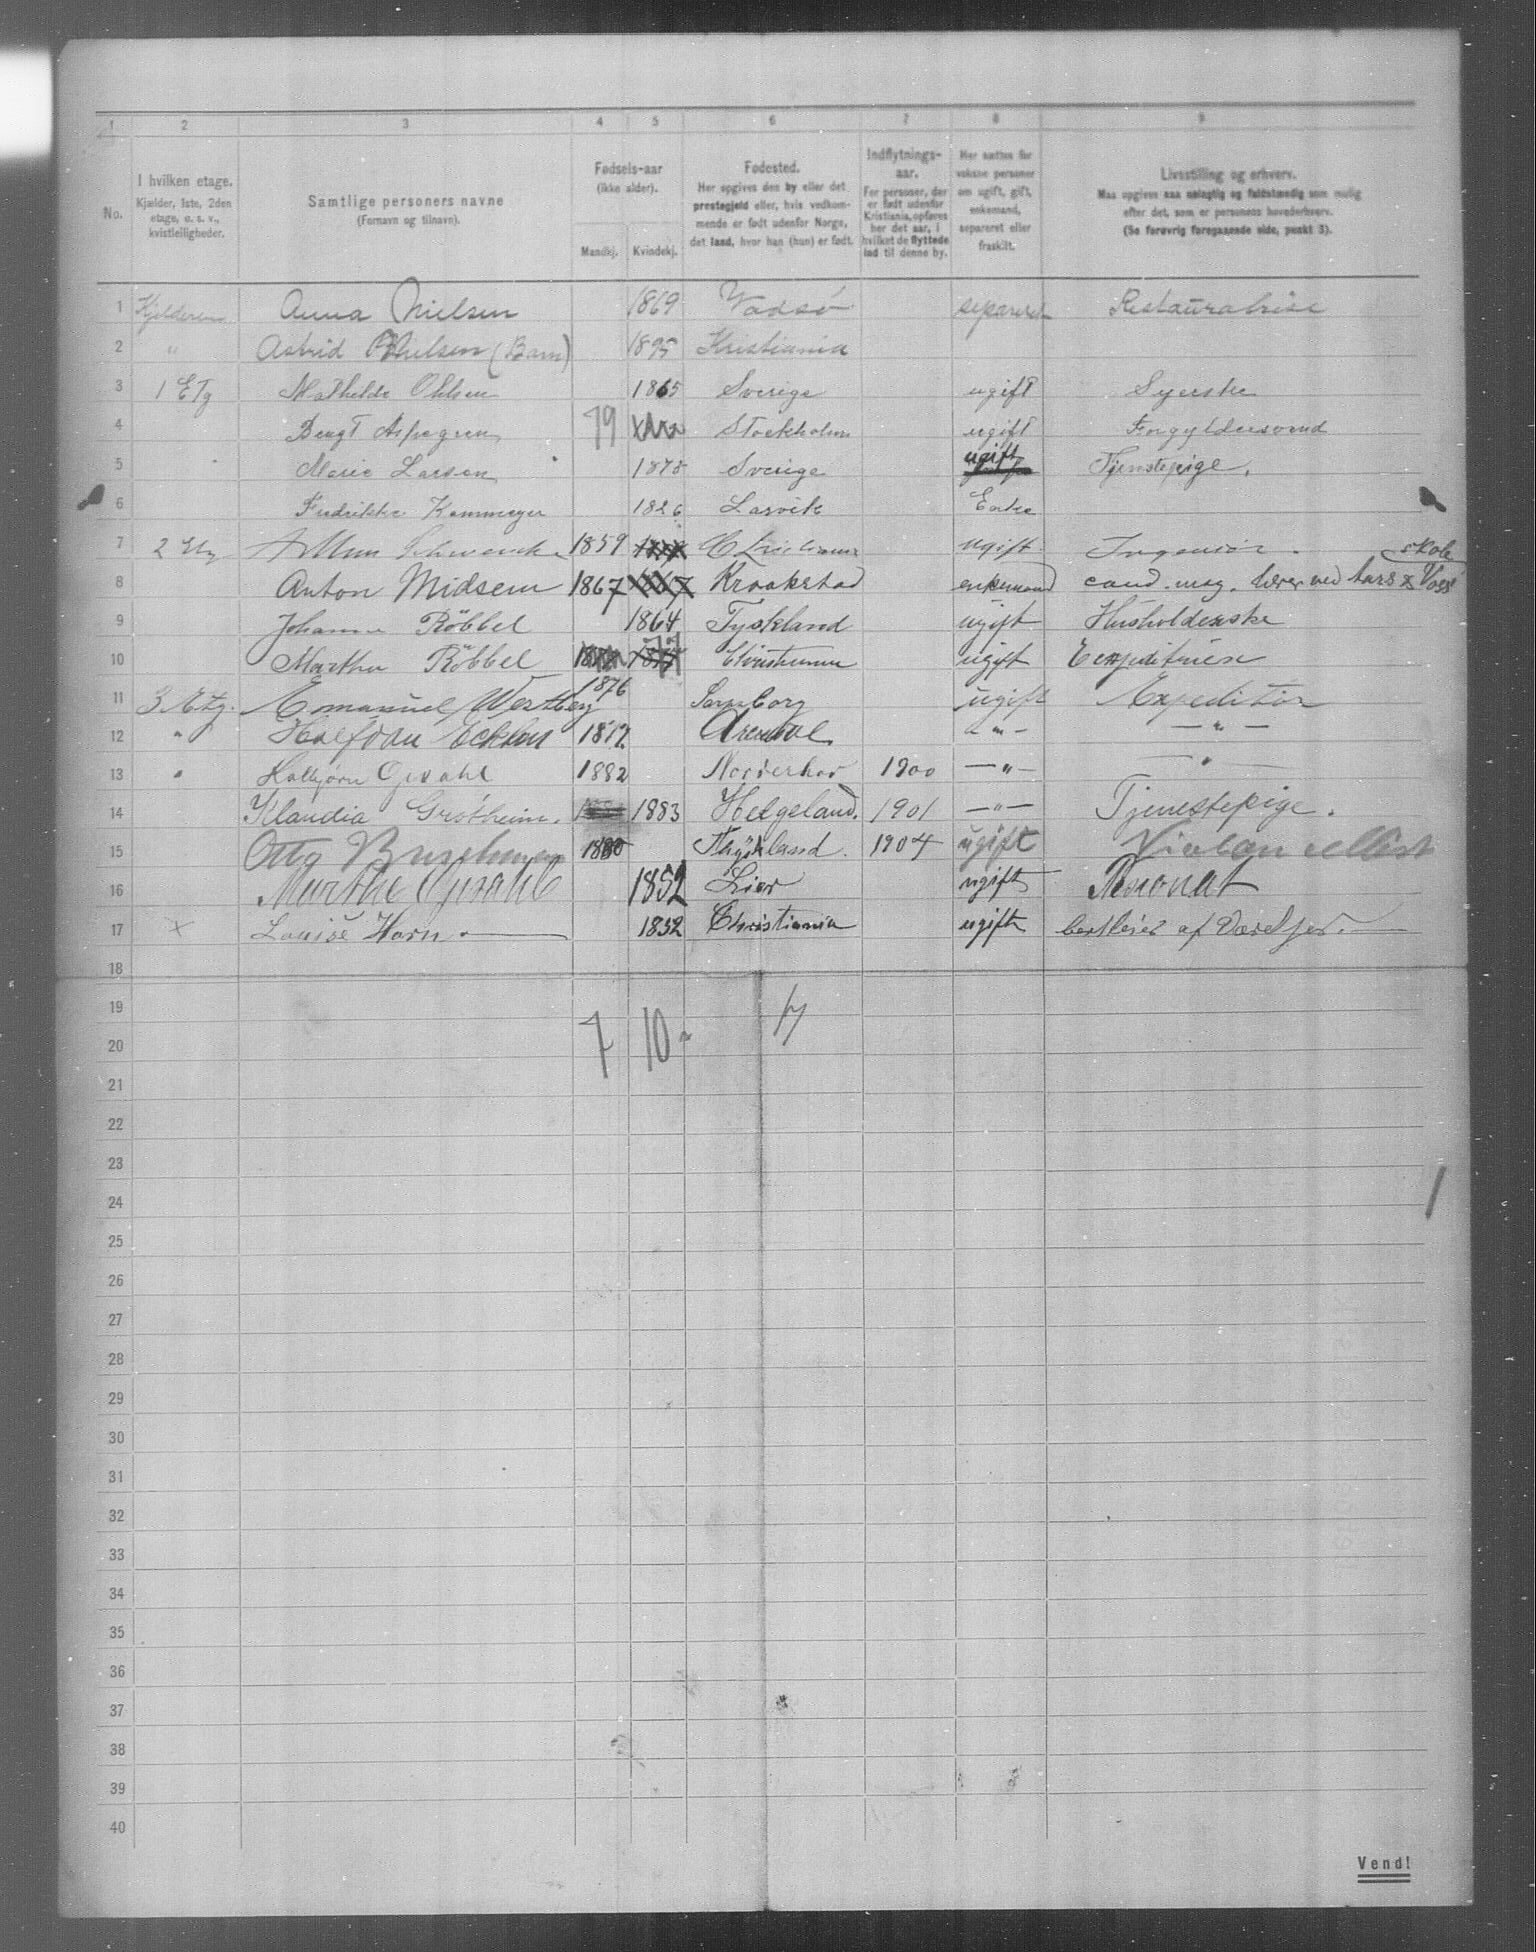 1 2 3 4 5 6 7 8 9
No.
I hvilken etage.
Kjælder, 1ste, 2den
etage, o. s. v.,
kvistleiligheder.
Samtlige personers navne
(Fornavn og tilnavn).
Fødsels-aar
(ikke alder).
Mandkj. Kvindekj.
Fødested.
Her opgives den by eller det
prestegjeld eller, hvis vedkom-
mende er født udenfor Norge,
det land, hvor han (hun) er født.
Indflytnings-
aar.
For personer, der
er født udenfor
Kristiania, opføres
her det aar, i
hvilket de flyttede
ind til denne by.
Her sættes for
voksne personer
om ugift, gift,
enkemand,
separeret eller
fraskilt.
Livsstilling og erhverv.
Maa opgives saa nøiagtig og fuldstændig som mulig
efter det, som er personens hovederhverv.
(Se forøvrig foregaaende side, punkt 3).
1 Kjelderen Anna Nielsen 1869 Vadsø separeret Restauratrise
2 " Astrid Nielsen (Barn) 1895 Kristiania
3 1 Etg Mathilde Ohlsen 1865 Sverige ugift Syerske
4 Bengt Aspegren 79 Stockholm ugift Forgyldersvend
5 Marie Larsen 1878 Sverige ugift Tjenestepige.
6 Fredrikke Kammeyer 1826 Larvik Enke
7 2 Etg 1859 ugift Ingeniør.
skole
8 Anton Midsem 1867 Kraakstad enkemand cand. mag. lærer ved Aars & Voss
9 Johanne Röbbel 1864 Tyskland ugift Husholderske
10 Martha Röbbel 77 Christiania ugift Expeditrise
11 3 Etg. Emanuel Westbey 1876 Sarpsborg ugift Expeditør
12 " Halfdan 1872 Arendal - " - - " -
13 " Halbjørn Gjesdahl 1882 Norderhov 1900 - " - - " -
14 Klaudia Grötheim. 1883 Helgeland. 1901 - " - Tjenestepige.
15 Otto 1880 Thyskland. 1904 ugift Violoncellist
16 Marthe 1852 Lier ugift
17 x Louise Horn. 1852 Christiania ugift af Værelser.
18
19
7 10 17
20
21
22
23
24
25
26
27
28
29
30
31
32
33
34
35
36
37
38
39
40
Vend!